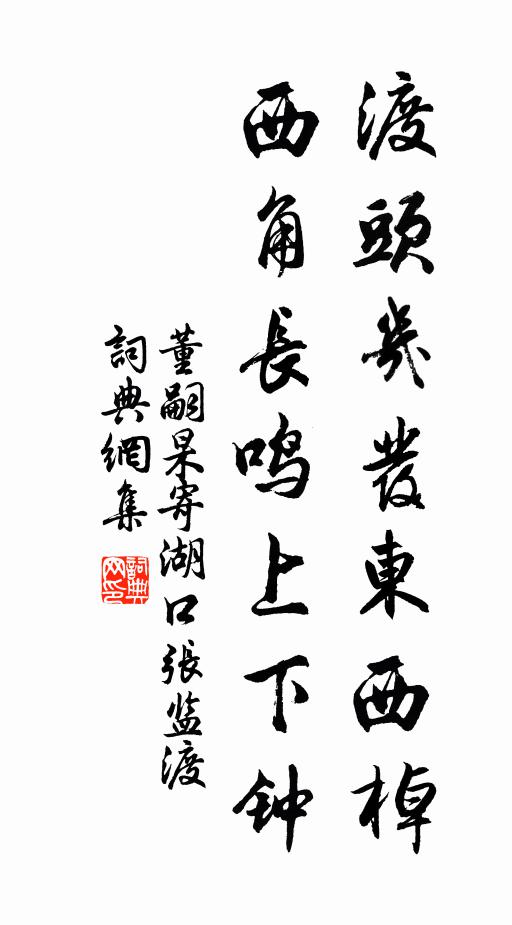 渡頭幾發東西棹
西角長鸣上下钟
董嗣杲寄湖口張监渡
詞典網集
詞典网印